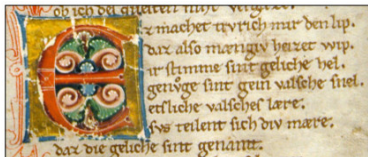 ob ich niht
Ez machet trvrich mir den lip.
daz also mænigiv heizet wip.
ir stimme sint geliche hel.
genvͦge sint gein valsche snel.
etsliche valsches lære.
svs teilent sich div mære.
daz die geliche sint genant.